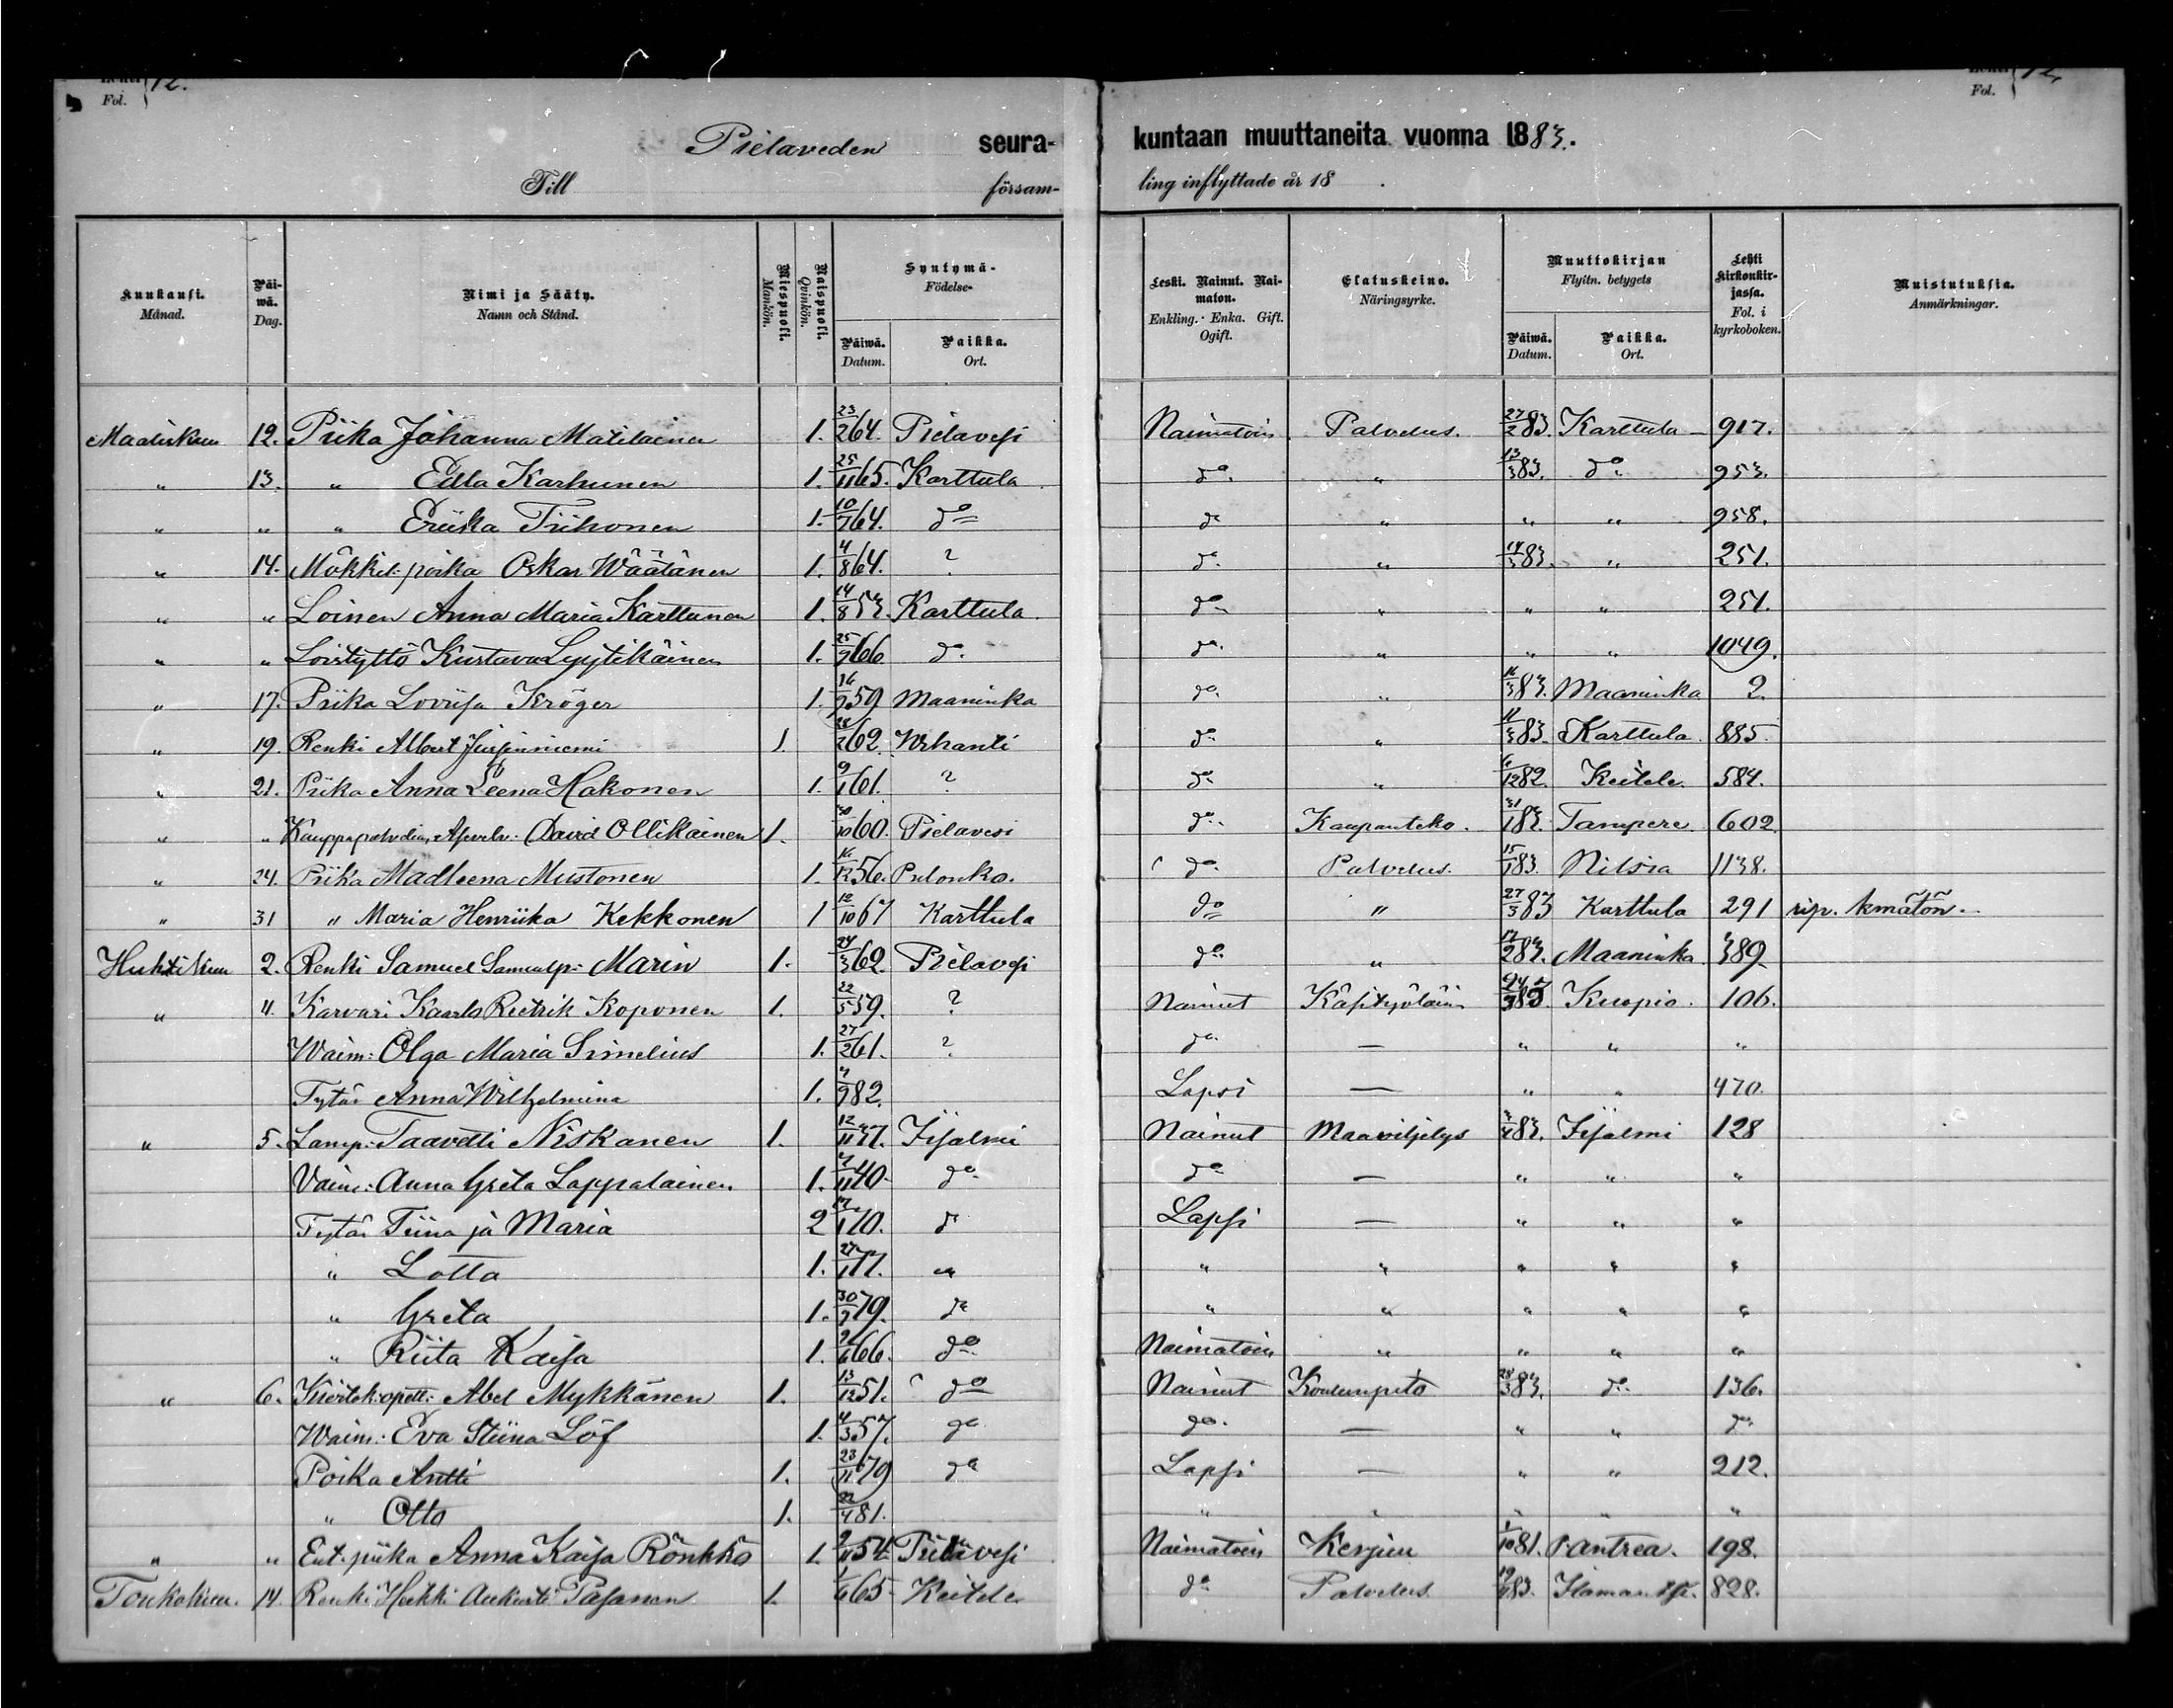 Fol. 12.
Fol. 12.
Pielaveden seura- kuntaan muuttaneita vuonna 1883.
Till försam- ling inflyttade år 18 .
Kuukausi. Månad.
Päi-wä. Dag.
Nimi ja Sääty. Namn och Stånd.
Miespuoli. Mankön.
Naispuoli. Qvinkön.
Syntymä- Födelse-
Päiwä. Datum.
Paikka. Ort.
Leski. Nainut. Naimaton. Enkling. Enka. Gift. Ogift.
Elatuskeino. Näringsyrke.
Muuttokirjan Flyttn. betygets
Päiwä. Datum.
Paikka. Ort.
Lehti kirkonkirjassa. Fol. i kyrkoboken.
Muistutuksia. Anmärkningar.
Maaliskuu 12. Piika Johanna Matilainen 1. 23/2 64. Pielavesi Naimatoin Palvelus. 27/2 83. Karttula 917.
" 13. " Edla Karhunen 1. 25/11 65. Karttula do. " 13/3 83. do. 953.
" " " Eriika Tiihonen 1. 10/7 64. do " " " 958.
" 14. Mökkil. poika Oskar Wäätänen 1. 4/8 64. ? do. " 14/3 83. " 251.
" " Loinen Anna Maria Karttunen 1. 14/8 53. Karttula. do. " " " 251.
" " Loistyttö Kustava Lyytikäinen 1. 25/7 66 do. do. " " " 1049.
" 17. Piika Loviisa Kröger 1. 59 Maaninka do. " 83. Maaninka 2.
" 19. Renki Albert 1. 62. do. " 83. Karttula. 885.
" 21. Piika Anna Leena Hakonen 1. 9/1 61. ? do. " 6/12 82. Keitele. 584.
" " David Ollikainen 1. 30/10 60. Pielavesi do. Kaupanteko. 31/1 83. Tampere. 602.
" 24. Piika Madleena Mustonen 1. 56. Pulonko. do. Palvelus. 15/1 83. Nilsiä 1138.
" 31 " Maria Henriika Kekkonen 1 12/10 67 Karttula do " 27/3 83 Karttula 291 rip. kmätön.
Huhtikuu 2. Renki Samuel Samulp. Marin 1. 24/3 62. Pielavesi do. " 17/2 83. Maaninka. 389.
" 4. Karvari Kaarlo Reetrik Koponen 1. 22/5 59. ? Nainut Käsityöläin 83. Kuopio. 106.
Waim: Olga Maria Simelius 1. 27/2 61. ? do. — " " "
Tytär Anna Wilhelmina 1. 82. Lapsi — " " 470.
" 5. Lamp: Taavetti Niskanen 1. 12/11 37. Iisalmi Nainut Maaviljelys 83. Iisalmi 128
Vaim: Anna Greta Lappalainen. 1. 40. do. do — " " "
Tytär Tiina ja Maria 2 70. do Lapsi — " " "
" Lotta 1. 27/1 77. " " " " " "
" Greta 1. 79. do " " " " "
" Riita Kaisa 1. 66. do. Naimatoin " " " "
" 6. Kiertok:opett: Abel Mykkänen 1. 13/12 51. do Nainut Koulunpito 28/3 83. do. 136.
Waim: Eva Stiina Löf 1. 4/3 57. do do. — " " do.
Poika Antti 1. 23/11 79 do Lapsi — " " 212.
" Otto 1. 22/4 81. " " " " "
" " Ent. piika Anna Kaisa Rönkkö 1. 54. Pielavesi Naimatoin Kerjuu 1/10 81. Pantrea. 198.
Toukokuu. 14. Renki Heikki Aukusti Pasanen 1. 1/6 65 Keitele do Palvelus. 83. 828.